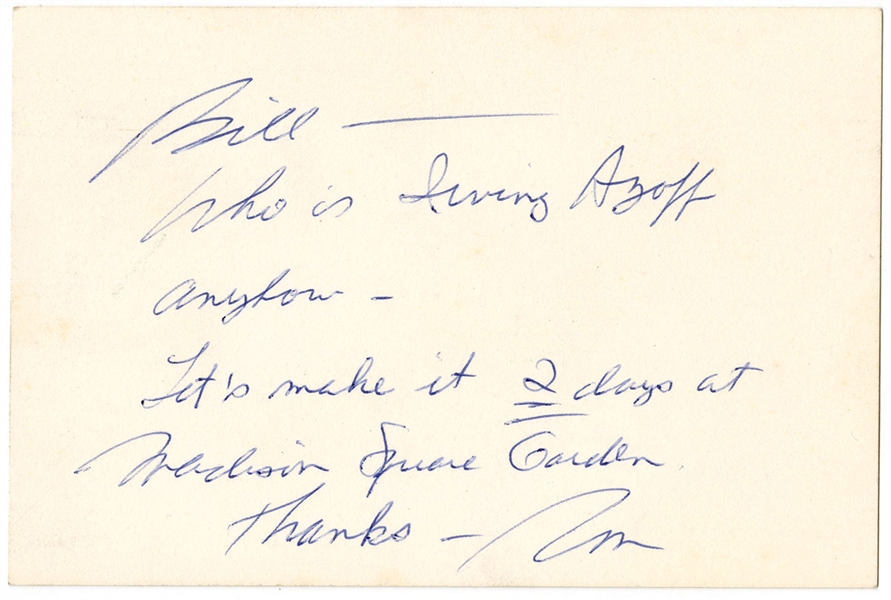 Bill —
Who is Irving Azoff
anyhow –
Let's make it 2 days at
Madison Square Garden.
Thanks –